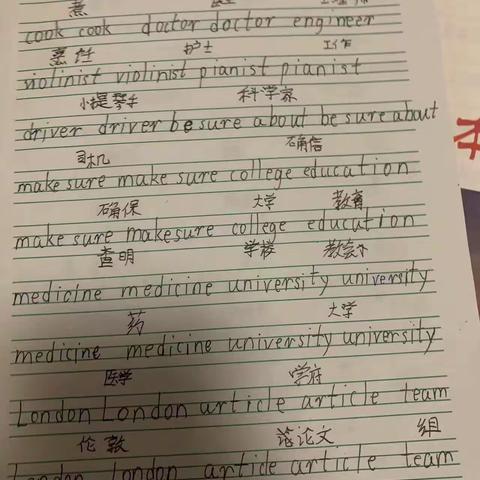 煮
cook cook doctor doctor engineer
烹饪 护士 工作
violinist violinist pianist pianist
小提琴手 科学家
driver driver be sure about be sure about
司机 确信
make sure make sure college education
确保 大学 教育
make sure make sure college education
查明 学校
medicine medicine university university
药 大学
medicine medicine university university
医学 学府
London London article article team
伦敦 论文 组
London London article article team